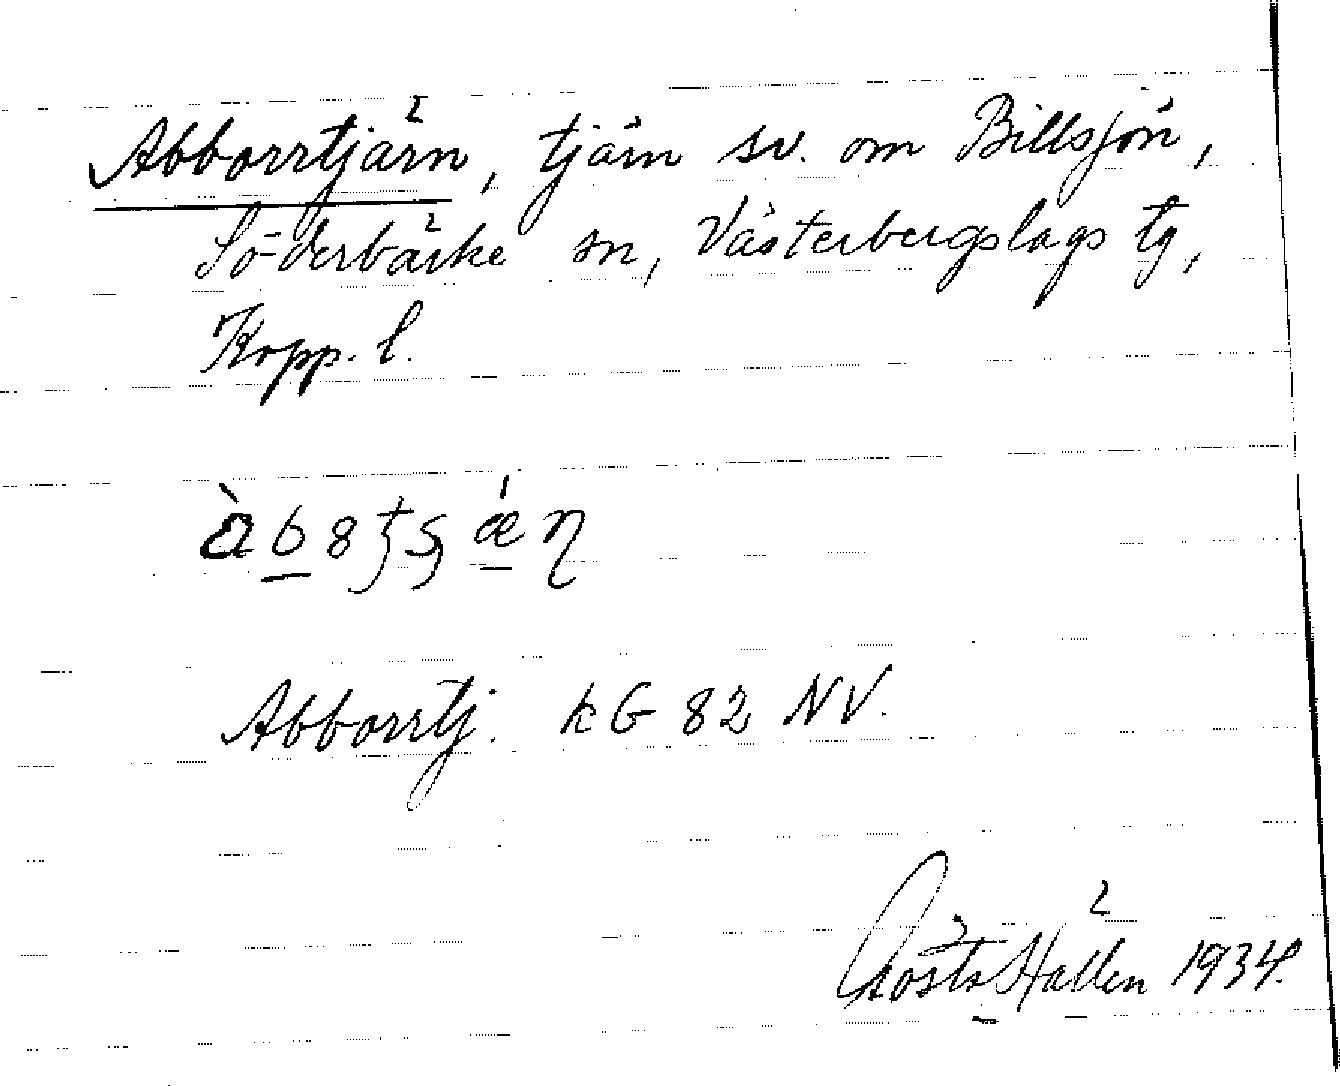 Abborrtjärn, tjärn sv. om Billsjön,
Söderbärke sn, Västerbergslags tg,
Kopp. l.
Abborrtj. kG 82 NV.
Gösta Hallén 1934.